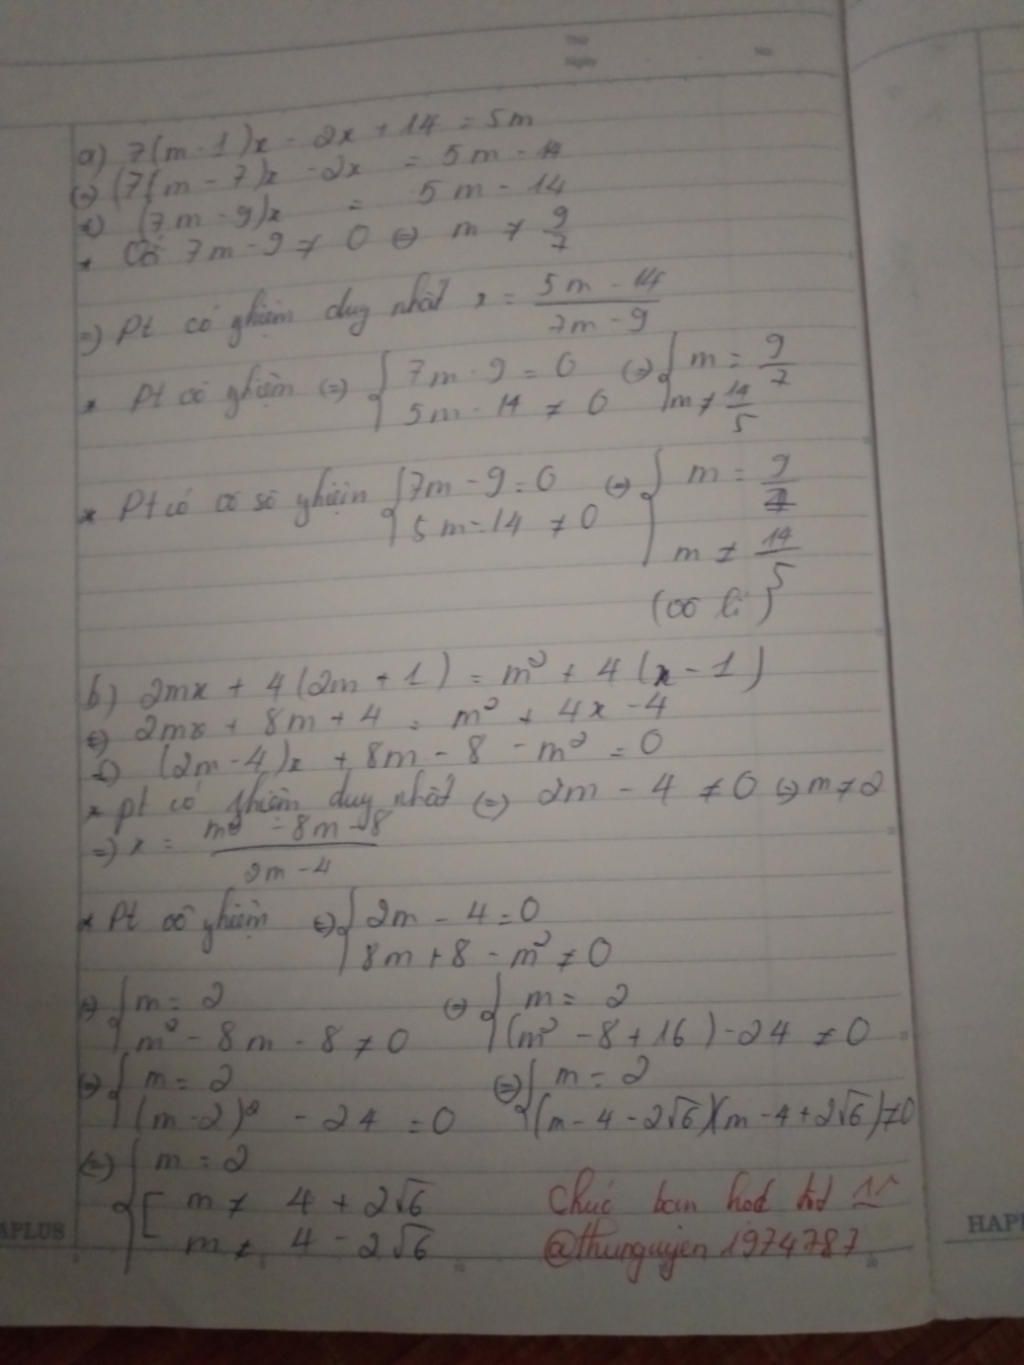 a) 7(m-1)x - 2x + 14 = 5m
⇔ (7m - 7)x - 2x = 5m - 14
⇔ (7m - 9)x = 5m - 14
* Có 7m - 9 ≠ 0 ⇔ m ≠ 9/7
⇒ Pt có nghiệm duy nhất x = (5m - 14)/(7m - 9)
* Pt vô nghiệm ⇔ { 7m - 9 = 0 ⇔ { m = 9/7
5m - 14 ≠ 0 m ≠ 14/5
* Pt có vô số nghiệm { 7m - 9 = 0 ⇔ { m = 9/7
5m - 14 ≠ 0 m ≠ 14/5
(vô lí)
b) 2mx + 4(2m + 1) = m² + 4(x - 1)
⇔ 2mx + 8m + 4 = m² + 4x - 4
⇔ (2m - 4)x + 8m - 8 - m² = 0
* pt có nghiệm duy nhất ⇔ 2m - 4 ≠ 0 ⇔ m ≠ 2
⇒ x = (m² - 8m - 8)/(2m - 4)
* Pt vô nghiệm ⇔ { 2m - 4 = 0
8m + 8 - m² ≠ 0
⇔ { m = 2 ⇔ { m = 2
m² - 8m - 8 ≠ 0 (m² - 8 + 16) - 24 ≠ 0
⇔ { m = 2 ⇔ { m = 2
(m - 2)² - 24 = 0 (m - 4 - 2√6)(m - 4 + 2√6) ≠ 0
⇔ { m = 2
[ m ≠ 4 + 2√6 Chúc bạn học tốt ^^
m ≠ 4 - 2√6 @thunguyen1974787
APLUS
HAP